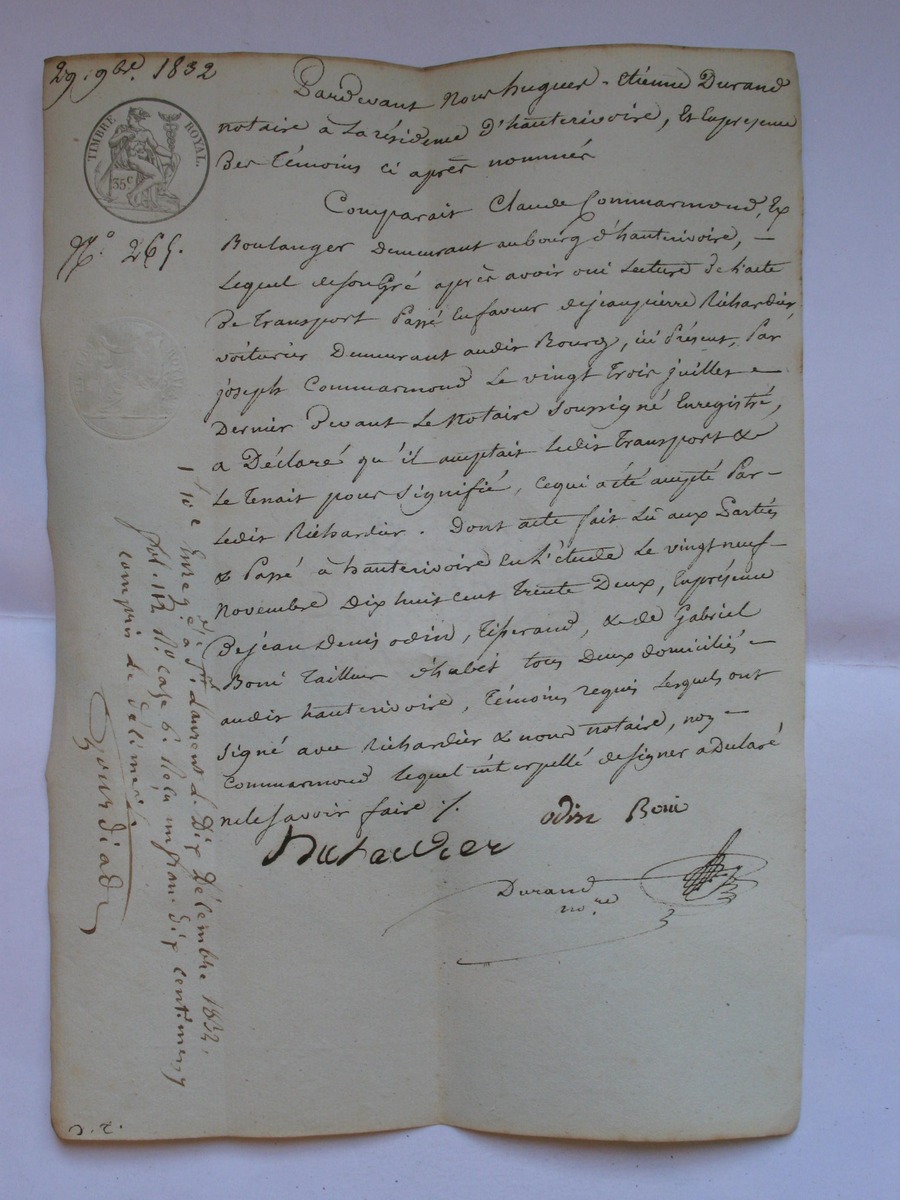 29. 9bre. 1832
TIMBRE ROYAL.
35c
No. 265.
Pardevant Nous hugues-etienne Durand
notaire à La résidence D'hauterivoire, Et Enpresence
Des Témoins ci après nommés
Comparait Claude Commarmond, Ex
Boulanger Demeurant aubourg d'hauterivoire, -
Lequel desongré après avoir oui Lecture de l'acte
De Transport Passé Enfaveur dejeanpierre Richardier
voiturier Demeurant audit Bourg, ici Présent, Par
joseph Commarmond Le vingt Trois juillet -
Dernier devant Le Notaire soussigné Enregistré,
a Déclaré qu'il acceptait Ledit Transport &
Le Tenait pour signifié, cequi aété accepté Par-
Ledit Richardier. Dont acte fait Lu aux Parties
& Passé à hauterivoire En L'étude Le vingt neuf-
Novembre Dix huit cent Trente Deux, Enprésence
Dejean Denis odin, Tisserand, & de Gabriel
Boni Tailleur d'habit tous Deux domiciliés -
audit hauterivoire, Témoins requis Lesquels ont
signé avec Richardier & nous notaire, non -
Commarmond lequel interpellé designer adeclaré
nelesavoir faire ./.
odin Boni
Richardier
Durand
nore
Enregé à St. Laurent Le Dix Décembre 1832,
fol. 112 Ro case 6. Reçu un franc Dix centimes
compris Le Décime